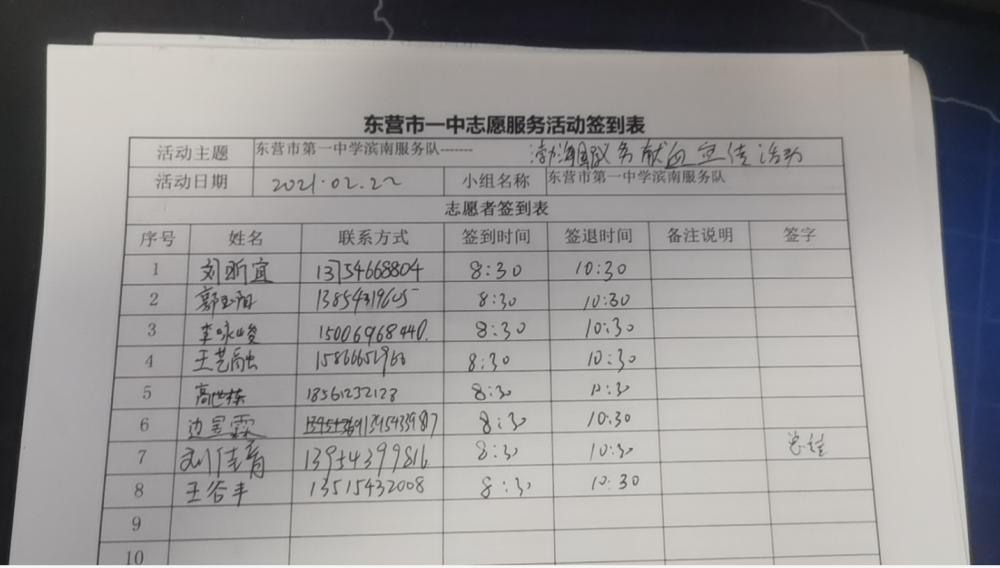 东营市一中志愿服务活动签到表
活动主题 东营市第一中学滨南服务队------ 渤海国际义务献血宣传活动
活动日期 2021.02.22 小组名称 东营市第一中学滨南服务队
志愿者签到表
序号 姓名 联系方式 签到时间 签退时间 备注说明 签字
1 刘昕宜 13754668804 8:30 10:30
2 郭玉阳 13854319605 8:30 10:30
3 李咏峻 15006968440. 8:30 10:30
4 王艺融 8:30 10:30
5 高世栋 18561232123 8:30 10:30
6 边昱霖 8:30 10:30
7 刘佳育 13954399816 8:30 10:30
8 王谷丰 13515432008 8:30 10:30
9
10